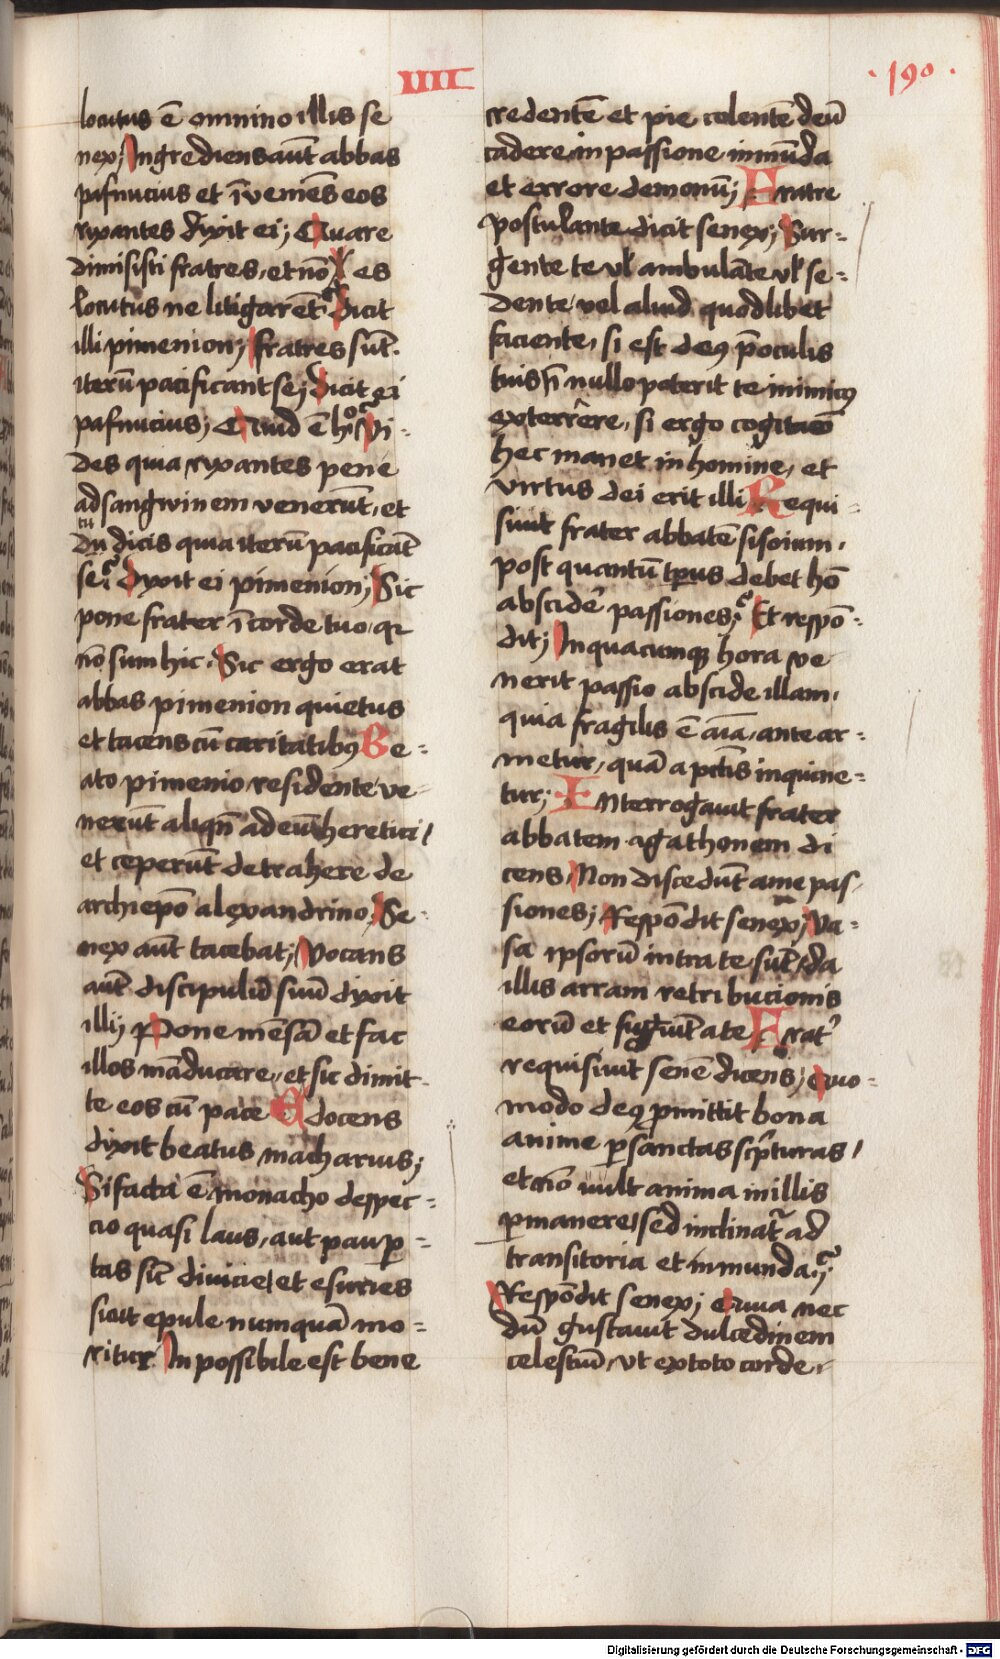 IIII
·190·
locutus ē omnino illis se
nex; Ingrediens aūt abbas
pafnucius et īveniēs eos
rixantes dixit ei; Quare
dimisisti fratres, et nō es
locutus ne litigarēt? Dicit
illi pimenion; fratres sūt.
iterū pacificant se; dicit ei
pafnucius; Quid ē hoc? Vi-
des quia rixantes pene
ad sangwinem venerūt, et
tu
du dicis quia iterū pacificāt
se? dixit ei pimenion; Sic
pone frater ī corde tuo, qr
nō sum hic. Sic ergo erat
abbas pimenion quietus
et tacens cū caritatibꝰ Be=
ato pimenio residente ve
nerūt aliqn̄ ad eūt heretici/
et ceperūt detrahere de
archiepō alexandrino, Se=
nex aūt tacebat; Vocans
aūt discipulū suū dixit
illi; Pone mēsā et fac
illos māducare, et sic dimit=
te eos cū pace Edocens
dixit beatus macharius;
Si facta ē monacho despec=
cio quasi laus, aut paup̱=
tas sic̄ divicie/ et esuries
sicut epule numquā mo=
ritur. Inpossibile est bene
credentē et pie colentē deū
cadere in passione inmūda
et errore demonū; Fratre
postulante dicit senex; Sur=
gente te vl ambulāte vl se=
dente vel aliud quodlibet
faciente, si est deꝰ p̄ oculis
tuis, ī nullo poterit te inimicꝰ
exterrere, si ergo cogitacō
hec manet in homine, et
virtus dei erit illi Requi=
sivit frater abbatē sisoium,
post quantū tp̄us debet hō
abscidē passiones? Et respō=
dit; In quacumqꝫ hora ve
nerit passio abscide illam,
quia fragilis ē aīa, ante ar=
metur, quā a pctīs inquine=
tur; Interrogavit frater
abbatem agathonem di
cens, Non discedūt a me pas/
siones; Respōdit senex; Va=
sa ipsorū intra te sūt, da
illis arram retribucionis
eorū et fugiūt a te Frat̉
requisivit senē dicens; Quo=
modo deꝰ p̱mittit bona
anime p̱ sanctas sc̉pturas/
et nō vult anima in illis
p̱manere/ sed inclinat̉ ad
transitoria et inmunda?
Respōdit senex; Quia nec
dū gustavit dulcedinem
celestiū, ut ex toto corde,
Digitalisierung gefördert durch die Deutsche Forschungsgemeinschaft - DFG